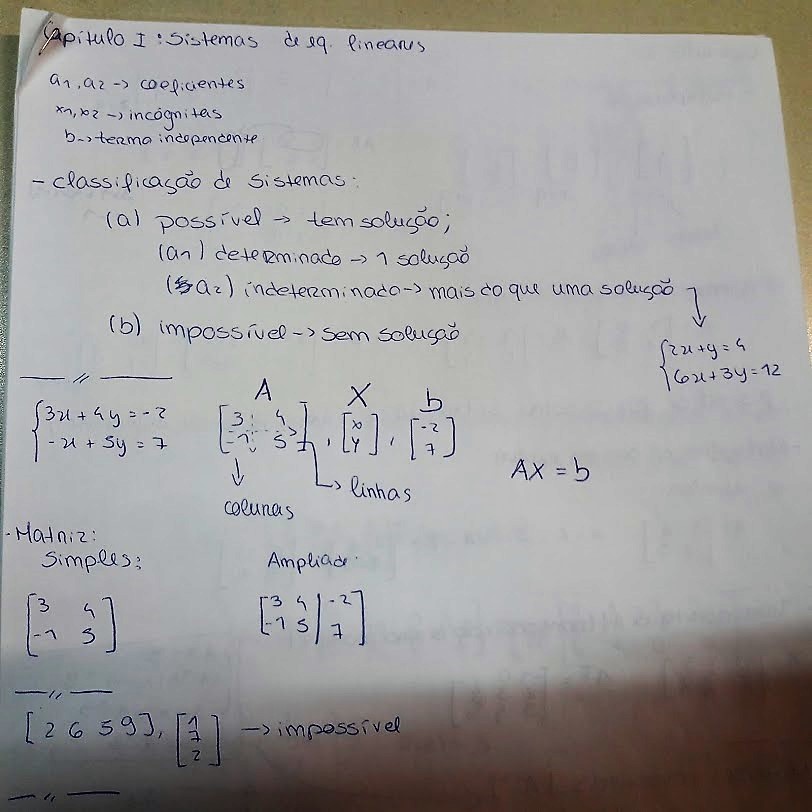 Capítulo I : Sistemas de eq. lineares
a1, a2 → coeficientes
x1, x2 → incógnitas
b → termo independente
- classificação de sistemas:
(a) possível → tem solução;
(a1) determinado → 1 solução
(a2) indeterminado → mais do que uma solução
(b) impossível → sem solução
{2x+y=4
{6x+3y=12
— // —
{3x+4y=-2
{-x+5y=7
A X b
[3 4; -1 5], [x; y], [-2; 7]
AX = b
colunas
linhas
- Matriz:
Simples: Ampliada:
[3 4; -1 5] [3 4 | -2; -1 5 | 7]
— // —
[2 6 5 9], [1; 7; 2] → impossível
— // —